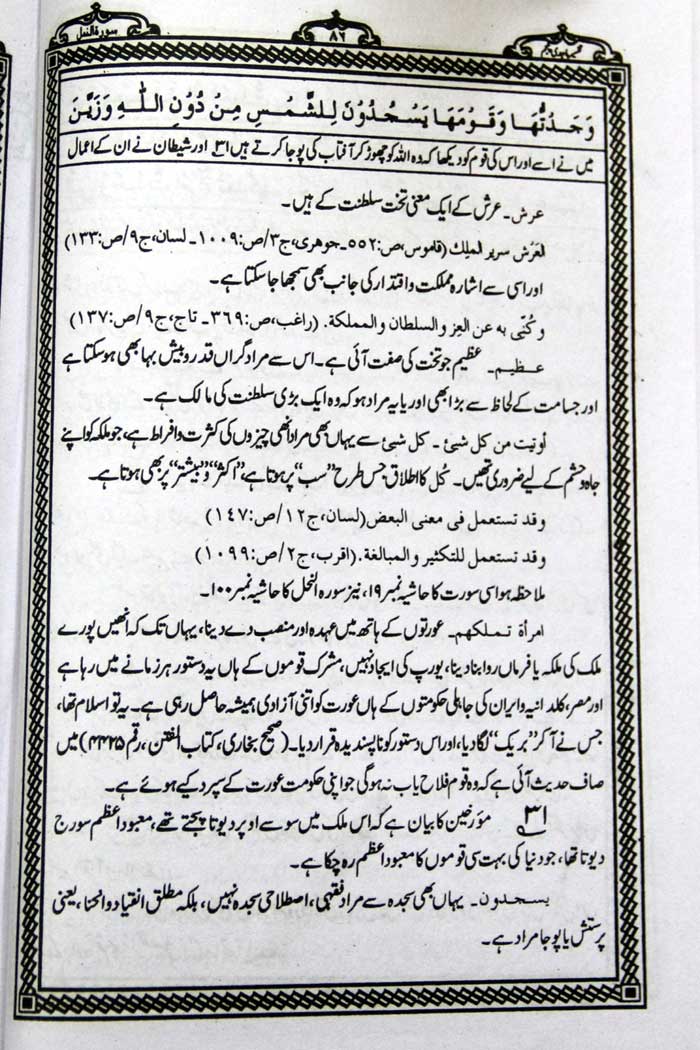 سورة النمل
۸۶
وَجَدْتُّهَا وَقَوْمَهَا يَسْجُدُوْنَ لِلشَّمْسِ مِنْ دُوْنِ اللّٰهِ وَزَيَّنَ
میں نے اسے اور اس کی قوم کو دیکھا کہ وہ اللہ کو چھوڑ کر آفتاب کی پوجا کرتے ہیں ۳۱ اور شیطان نے ان کے اعمال
عرش۔ عرش کے ایک معنی تخت سلطنت کے ہیں۔
العَرْش سریر الملِك (قاموس،ص:۵۵۲۔جوهری،ج۳/ص:۱۰۰۹۔لسان،ج۹/ص:۱۳۳)
اور اسی سے اشارہ مملکت و اقتدار کی جانب بھی سمجھا جا سکتا ہے۔
و كُنّى به عن العِز والسلطان والمملكة. (راغب،ص:۳۶۹۔ تاج،ج۹/ص:۱۳۷)
عظیم۔ عظیم جو تخت کی صفت آئی ہے۔ اس سے مراد گراں قدر و بیش بہا بھی ہو سکتا ہے
اور جسامت کے لحاظ سے بڑا بھی اور یا یہ مراد ہو کہ وہ ایک بڑی سلطنت کی مالک ہے۔
أوتیت من كل شیئ۔ كل شیئ سے یہاں بھی مراد انھی چیزوں کی کثرت و افراط ہے، جو ملکہ کو اپنے
جاہ و حشم کے لیے ضروری تھیں۔ کُل کا اطلاق جس طرح ’’سب‘‘ پر ہوتا ہے، ’’اکثر‘‘ و ’’بیشتر‘‘ پر بھی ہوتا ہے۔
وقد تستعمل فی معنی البعض (لسان،ج۱۲/ص:۱۴۷)
وقد تستعمل للتكثیر والمبالغة. (اقرب،ج۲/ص:۱۰۹۹)
ملاحظہ ہو اسی سورت کا حاشیہ نمبر ۱۹، نیز سورہ النحل کا حاشیہ نمبر ۱۰۰۔
امرأة تملكهم۔ عورتوں کے ہاتھ میں عہدہ اور منصب دے دینا، یہاں تک کہ انھیں پورے
ملک کی ملکہ یا فرماں روا بنا دینا، یورپ کی ایجاد نہیں، مشرک قوموں کے ہاں یہ دستور ہر زمانے میں رہا ہے
اور مصر، کلدانیہ و ایران کی جاہلی حکومتوں کے ہاں عورت کو اتنی آزادی ہمیشہ حاصل رہی ہے۔ یہ تو اسلام تھا،
جس نے آ کر ’’بریک‘‘ لگا دیا، اور اس دستور کو ناپسندیدہ قرار دیا۔ (صحیح بخاری، کتاب الفتن، رقم ۴۴۲۵) میں
صاف حدیث آئی ہے کہ وہ قوم فلاح یاب نہ ہوگی جو اپنی حکومت عورت کے سپرد کیے ہوئے ہے۔
۳۱ مؤرخین کا بیان ہے کہ اس ملک میں سو سے اوپر دیوتا پجتے تھے، معبود اعظم سورج
دیوتا تھا، جو دنیا کی بہت سی قوموں کا معبود اعظم رہ چکا ہے۔
یسجدون۔ یہاں بھی سجدہ سے مراد فقہی، اصطلاحی سجدہ نہیں، بلکہ مطلق انقیاد و انحنا، یعنی
پرستش یا پوجا مراد ہے۔